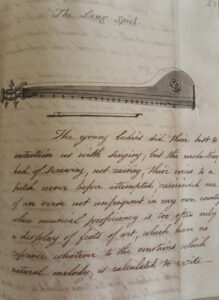 The Lang Spiel
The young ladies did their best to
entertain us with singing; but the mode they
had of screwing, not raising, their voices to a
pitch never before attempted, reminded me
of an error not unfrequent in my own country
when musical proficiency is too often only
a display of feats of art, which have no
reference whatever to the emotions which
natural melody, is calculated to excite —